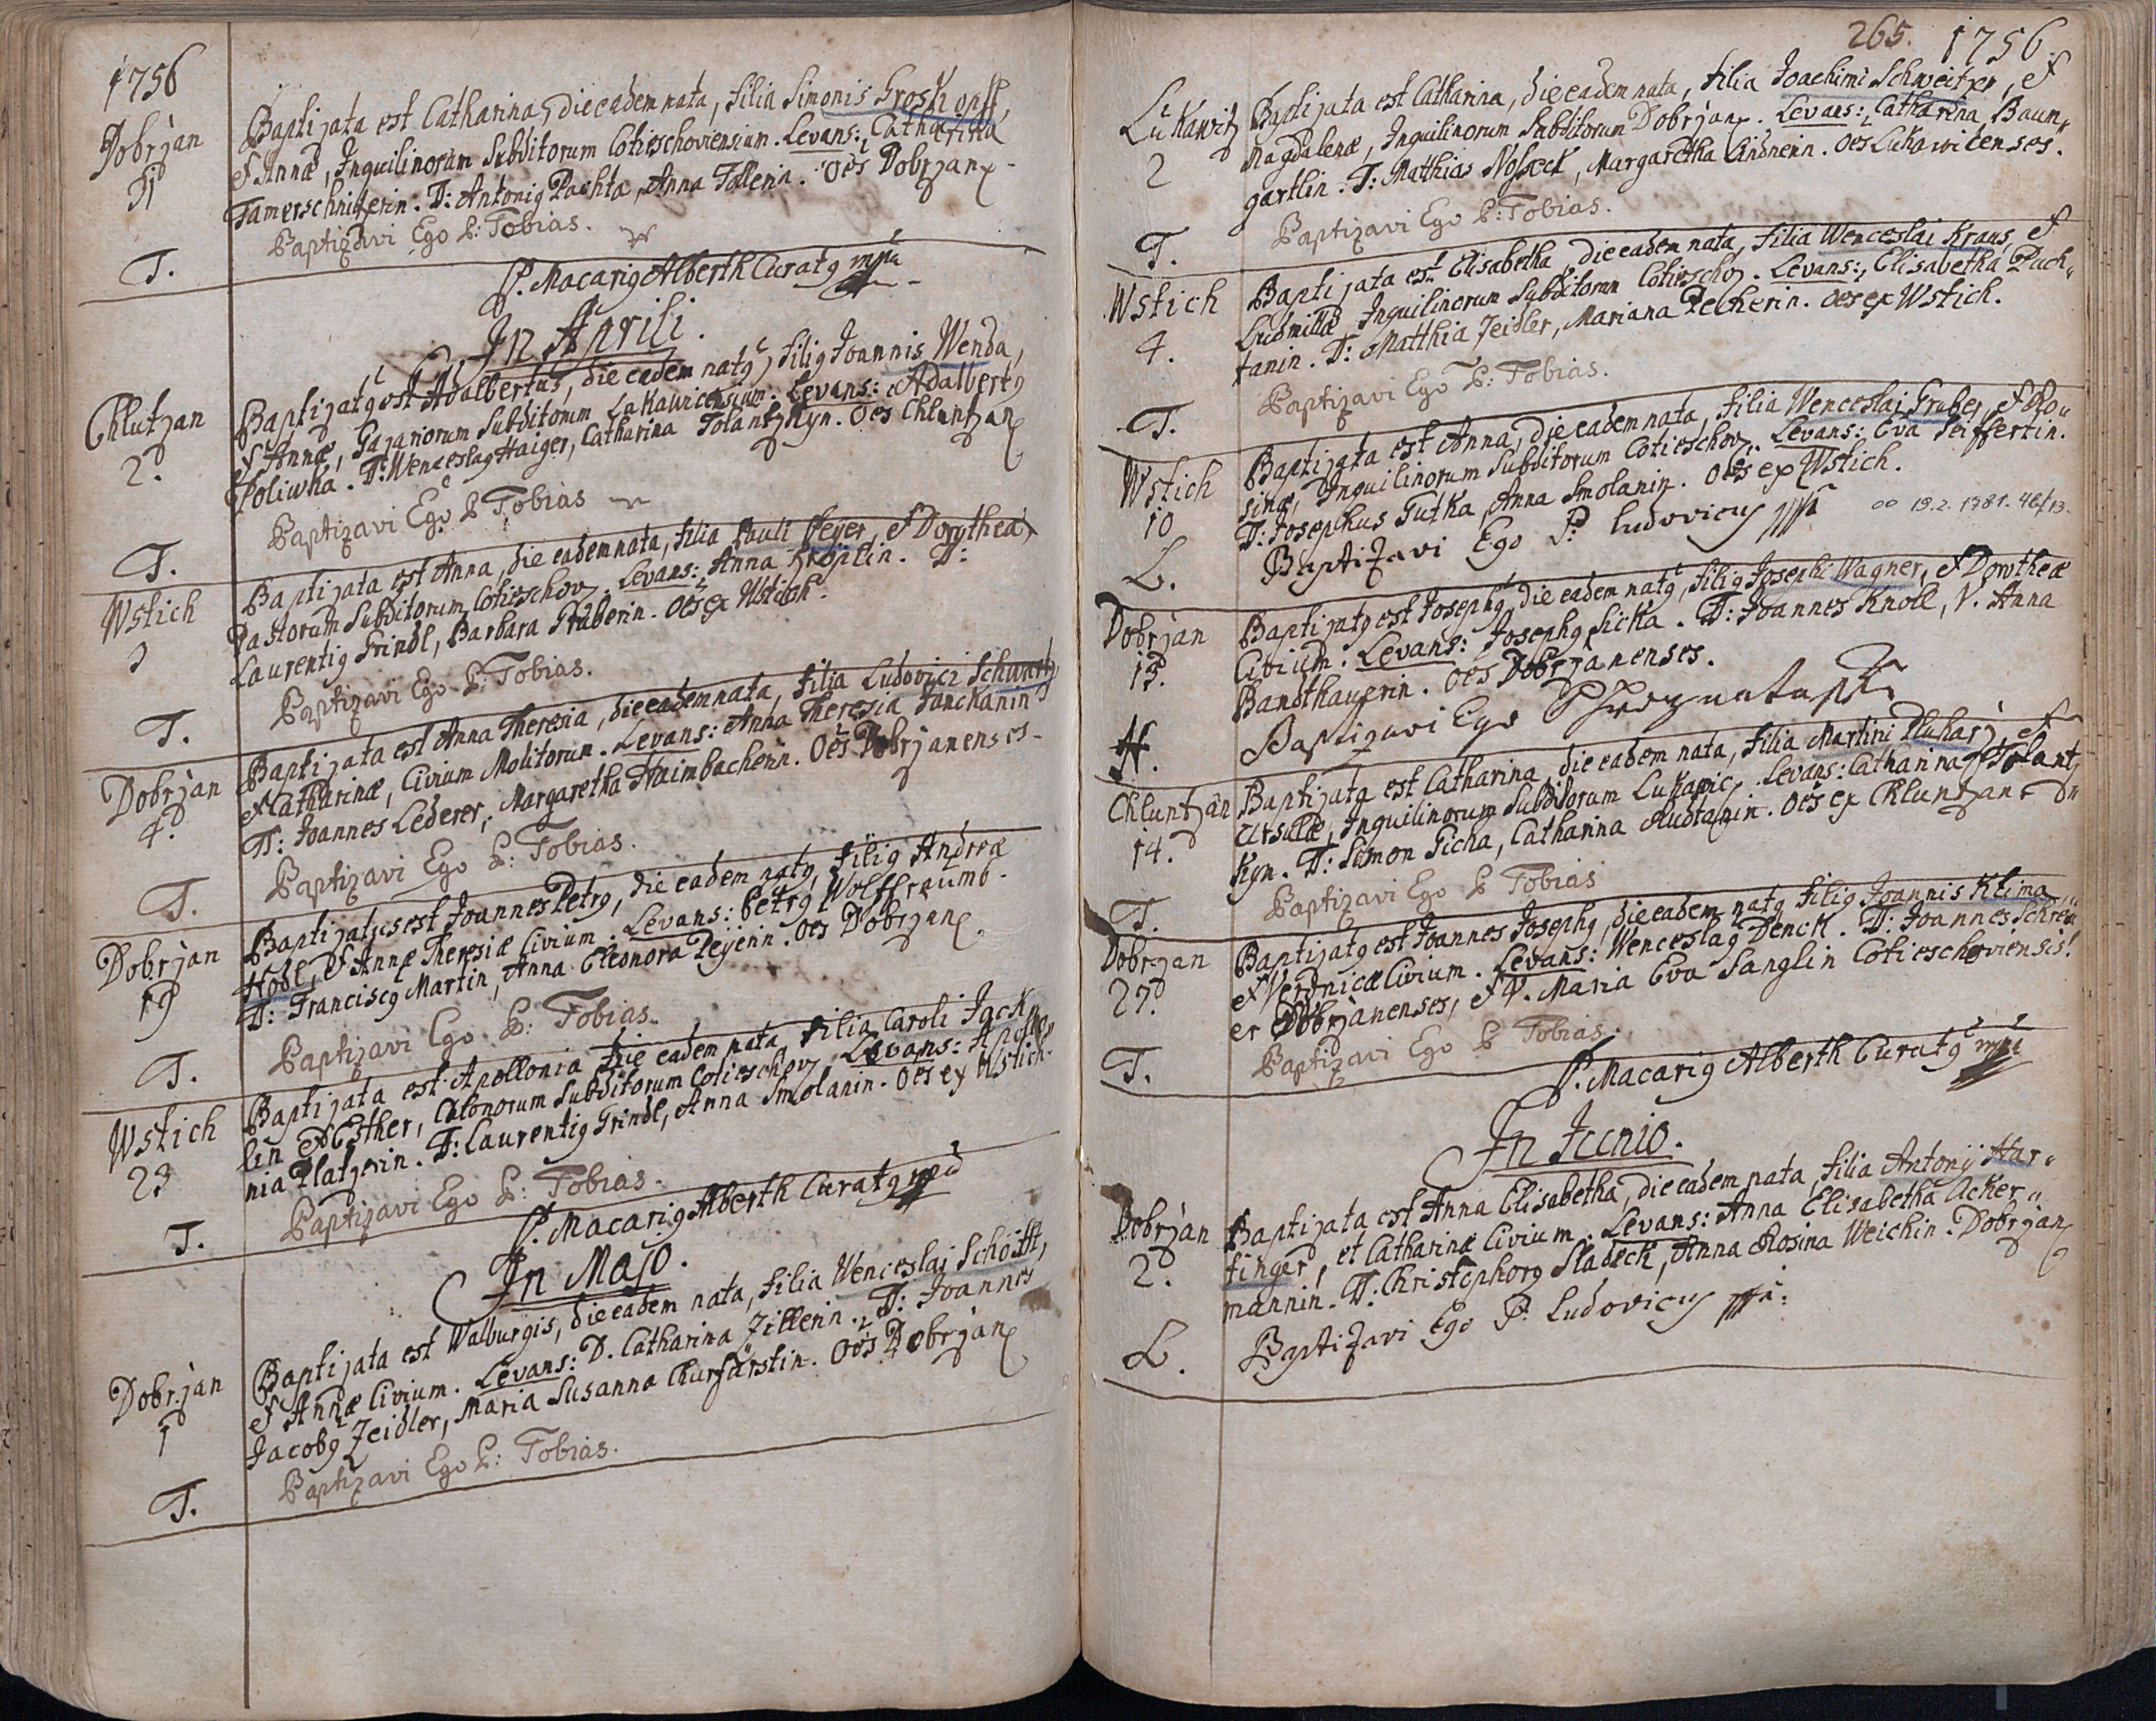 1756
Dobrzan
31
T.
Baptizata est Catharina, die eadem nata, filia Simonis Groskopff,
& Annæ, Inquilinorum Subditorum Cotieschoviensium. Levans: Catharina
Tamerschnizerin. T: Antonig Pachta, Anna Tollerin. Oēs Dobrzan
Baptizavi Ego P: Tobias.
P. Macarig Alberth Curatg mpia
In Aprili.
Chlutzan
2.
T.
Baptizatg est Adalbertus, die eadem natg, filig Joannis Wenda,
& Annæ, Gazariorum Subditorum Lukawicensium. Levans: Adalbertg
Poliwka. T: Wenceslag Haiger, Catharina Tolantzkyn. Oēs Chluntzan
Baptizavi Ego P Tobias
Wstich
3
T.
Baptizata est Anna, die eadem nata, filia Pauli Peyer, & Dorotheæ
Pastorum Subditorum Cotieschov. Levans: Anna Kröplin. T:
Laurentig Grindl, Barbara Gruberin. Oēs ex Wstich.
Baptizavi Ego P: Tobias.
Dobrzan
4.
T.
Baptizata est Anna Theresia, die eadem nata, filia Ludovici Schwartz
& Catharinæ, Civium Molitorum. Levans: Anna Theresia Janckanin
T: Joannes Lederer, Margaretha Haimbacherin. Oēs Dobrzanenses.
Baptizavi Ego P: Tobias.
Dobrzan
19
T.
Baptizatus est Joannes Petrg, die eadem natg, filig Andreæ
Hödl, & Annæ Theresiæ Civium. Levans: Petrg Wolffraumb.
T: Franciscg Martin, Anna Eleonora Peyerin. Oēs Dobrzan
Baptizavi Ego P: Tobias.
Wstich
23
T.
Baptizata est Apollonia die eadem nata, filia Caroli Jäck
lin & Esther, Colonorum Subditorum Cotieschov. Levans: Apollo,,
nia Platzerin. T: Laurentig Grindl, Anna Smolanin. Oēs ex Wstich.
Baptizavi Ego P: Tobias.
P. Macarig Alberth Curatg mpia
In Majo.
Dobrzan
1
T.
Baptizata est Walburgis, die eadem nata, filia Wenceslai Schöfft,
& Annæ Civium. Levans: D. Catharina Zillerin. T: Joannes
Jacobg Zeidler, Maria Susanna Churfürstin. Oēs Dobrzan
Baptizavi Ego P: Tobias.
265. 1756
Lukawitz
2
T.
Baptizata est Catharina, die eadem nata, filia Joachimi Schweitzer, &
Magdalenæ, Inquilinorum Subditorum Dobrzan. Levans: Catharina Baum,,
gartlin. T: Matthias Noseck, Margaretha Lindnerin. Oes Lukawicenses.
Baptizavi Ego P: Tobias.
Wstich
4.
T.
Baptizata est Elisabetha, die eadem nata, filia Wenceslai Kraus, &
Ludmillæ, Inquilinorum Subditorum Cotieschov. Levans: Elisabetha Puch,,
tanin. T: Matthia Zeidler, Mariana Pecherin. Oēs ex Wstich.
Baptizavi Ego P: Tobias.
Wstich
10
L.
Baptizata est Anna, die eadem nata, filia Wenceslai Gruber, & Ro,,
sinæ, Inquilinorum Subditorum Cotieschov. Levans: Eva Seiffertin.
T: Josephus Gutka, Anna Smolanin. Oēs ex Wstich.
Baptizavi Ego P. Ludovicus mpia
oo 19.2. 1781. 46/13.
Dobrzan
13.
N.
Baptizatg est Josephg, die eadem natg, filig Josephi Wagner, & Dorotheæ
Civium. Levans: Josephg Sicka. T: Joannes Knoll, V. Anna
Bandthauerin. Oēs Dobrzanenses.
Baptizavi Ego
Chluntzan
14.
T.
Baptizata est Catharina, die eadem nata, filia Martini Pluharz, &
Ursulæ, Inquilinorum Subditorum Lukavic. Levans: Catharina Tolantz
kyn. T: Simon Gicha, Catharina Audtanin. Oēs ex Chluntzan
Baptizavi Ego P Tobias
Dobrzan
27.
T.
Baptizatg est Joannes Josephg, die eadem natg filig Joannis Klima,
& Veronicæ Civium. Levans: Wenceslag Denck. T: Joannes Schrey,,
er Dobrzanenses, & V. Maria Eva Sanglin Cotieschoviensis.
Baptizavi Ego P Tobias.
P. Macarig Alberth Curatg mpia
In Junio.
Dobrzan
2.
L.
Baptizata est Anna Elisabetha, die eadem nata, filia Antonij Har,,
tinger, et Catharinæ Civium. Levans: Anna Elisabetha Acker,,
mannin. T: Christophorg Sladeck, Anna Rosina Weichin. Dobrzan
Baptizavi Ego P. Ludovicus mpia.